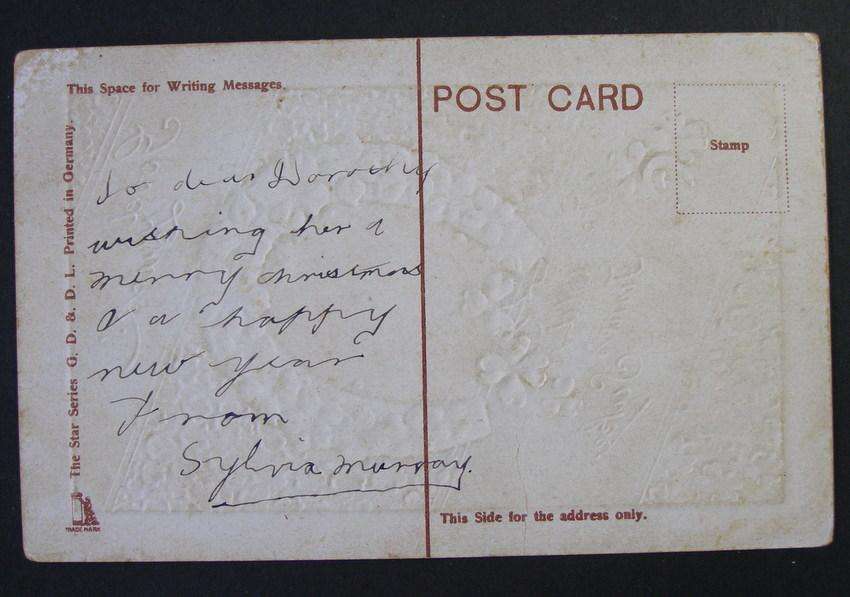 This Space for Writing Messages.
POST CARD
Stamp
The Star Series G. D. &. D. L. Printed in Germany.
To dear Dorothy
wishing her a
merry christmas
& a happy
new year
From
Sylvia Murray.
TRADE MARK
This Side for the address only.